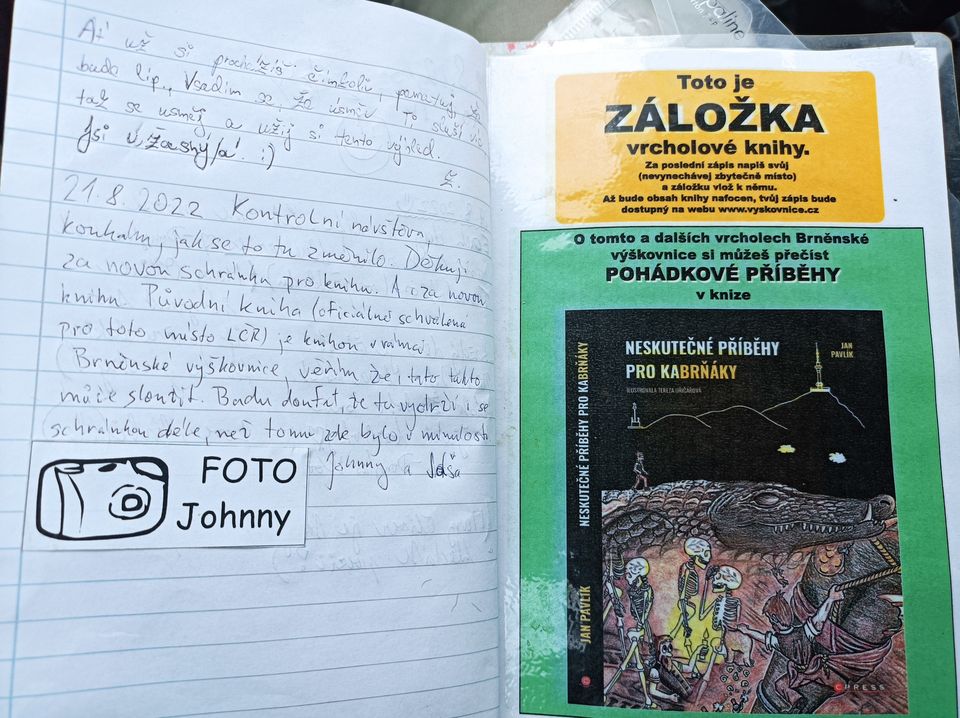 Ať už si procházíš čímkoliv, pamatuj, že
bude líp. Vsadím se, že úsměv Ti sluší víc
tož se usměj a užij si tento výhled.
Jsi úžasný/á! :)
Ž.
21.8.2022 Kontrolní návštěva,
koukám, jak se to tu změnilo. Děkuji
za novou schránku pro knihu. A za novou
knihu. Původní kniha (oficiálně schválená
pro toto místo LČR) je knihou v rámci
Brněnské výškovnice, věřím že, tato takto
může sloužit. Budu doufat, že tu vydrží i se
schránkou déle, než tomu zde bylo v minulosti
Johnny a
FOTO
Johnny
paline
Toto je
ZÁLOŽKA
vrcholové knihy.
Za poslední zápis napiš svůj
(nevynechávej zbytečně místo)
a záložku vlož k němu.
Až bude obsah knihy nafocen, tvůj zápis bude
dostupný na webu www.vyskovnice.cz
O tomto a dalších vrcholech Brněnské
výškovnice si můžeš přečíst
POHÁDKOVÉ PŘÍBĚHY
v knize
NESKUTEČNÉ PŘÍBĚHY
PRO KABRŇÁKY
JAN
PAVLÍK
ILUSTROVALA TEREZA
JAN PAVLÍK NESKUTEČNÉ PŘÍBĚHY PRO KABRŇÁKY
CPRESS